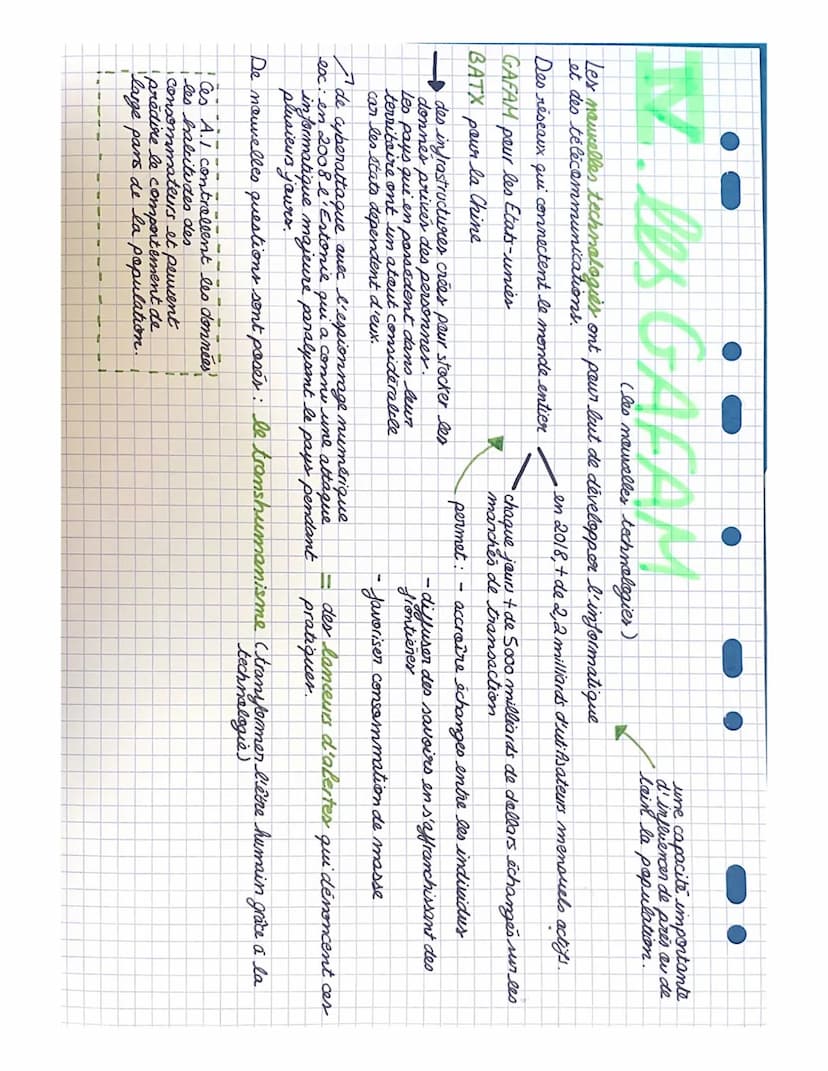 IV. Les GAFAM
(les nouvelles technologies)
une capacité importante
d'influencer de près ou de
loin la population.
Les nouvelles technologies ont pour but de développer l'informatique
et des télécommunications.
Des réseaux qui connectent le monde entier
en 2018, + de 2,2 milliards d'utilisateurs mensuels actifs.
chaque jours + de 5000 milliards de dollars échangés sur les
marchés de transaction
GAFAM pour les États-unies
BATX pour la Chine
permet : - accroître échanges entre les individus
- diffuser des savoirs en s'affranchissant des
frontières
- favoriser consommation de masse
→ des infrastructures crées pour stocker les
données privés des personnes.
Les pays qui en possèdent dans leur
territoire ont un atout considérable
car les États dépendent d'eux.
↗ de cyberattaque avec l'espionnage numérique
ex : en 2008 l'Estonie qui a connu une attaque
informatique majeure paralysant le pays pendant
plusieurs jours.
= des lanceurs d'alertes qui dénoncent ces
pratiques.
De nouvelles questions sont posés : le transhumanisme (transformer l'être humain grâce à la
technologie)
Ces A.I contrôlent les données
les habitudes des
consommateurs et peuvent
prédire le comportement de
large pars de la population.